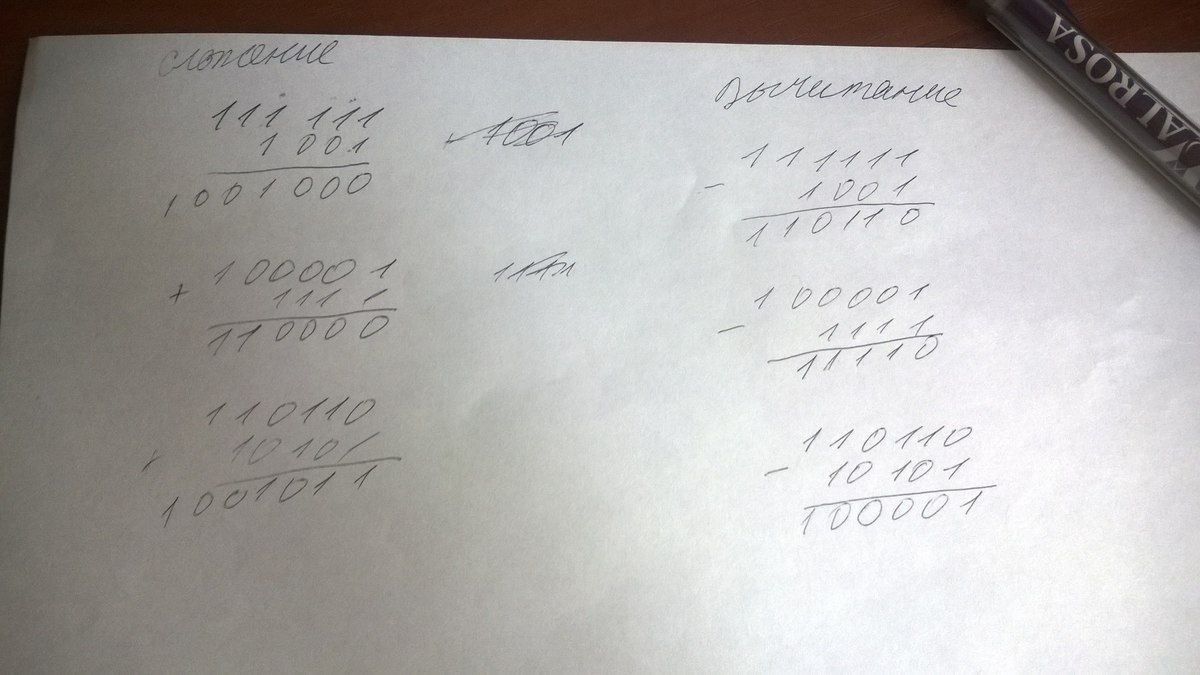 сложение
111 111
1 001
1001 000
+ 100001
1111
110000
110110
+ 10101
1001011
1001
вычитание
111111
- 1001
110110
100001
- 1111
11110
110110
- 10 101
100001
ALROSA